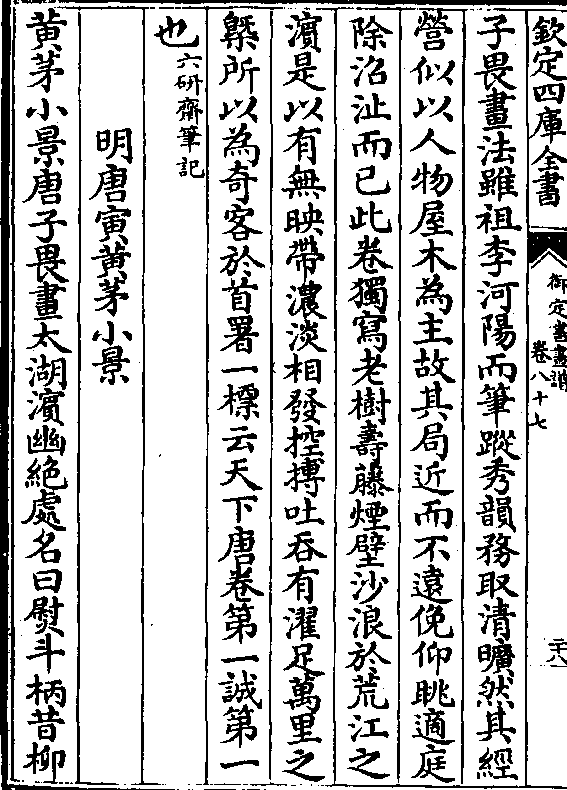 欽定四庫全書
御定書畫譜
卷八十七
二十八
子畏畫法雖祖李河陽而筆蹤秀韻務取清曠然其經
營似以人物屋木為主故其局近而不遠俛仰眺適庭
除沼沚而已此卷獨寫老樹壽藤煙壁沙浪於荒江之
濵是以有無映帶濃淡相發控摶吐吞有濯足萬里之
槩所以為奇客於首署一標云天下唐卷第一誠第一
也六研齋筆記
明唐寅黄茅小景
黄茅小景唐子畏畫太湖濵幽絶處名曰熨斗柄昔柳